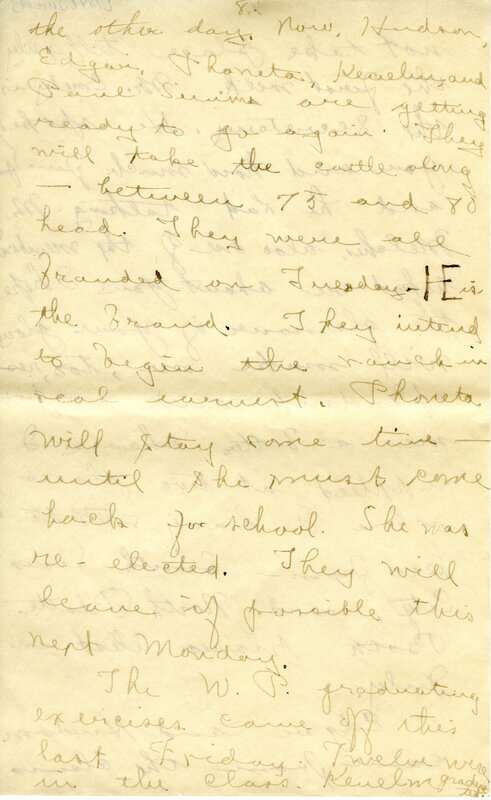 8.
the other day. Now, Hudson,
Edgar, Phoneta, Kenelm and
Paul Simms are getting
ready to go again. They
will take the cattle along
— between 75 and 80
head. They were all
branded on Tuesday - HE is
the brand. They intend
to begin the ranch in
real earnest. Phoneta
will stay some time —
until she must come
back for school. She was
re-elected. They will
leave if possible this
next Monday.
The W. P. graduating
exercises came off this
last Friday. Twelve were
in the class. Kenelm gradua-
ted.